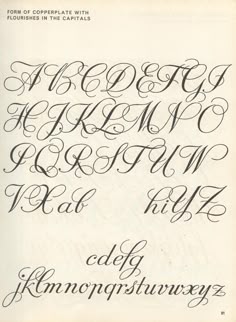 FORM OF COPPERPLATE WITH
FLOURISHES IN THE CAPITALS
ABCDEFGI
HJKLMNO
PQRSTUW
VXab hiYZ
cdefg
jklmnopqrstuvwxyz